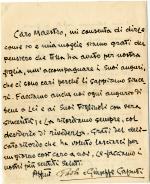 Caro Maestro, mi consenta di dire
come io e mia moglie siamo grati del
pensiero che Ella ha avuto per nostra
figlia, nell'accompagnare i Suoi auguri,
che ci sono cari perché li sappiamo since-
ri. Facciamo anche noi ogni augurio di
bene a Lei e ai Suoi figliuoli con vera
sincerità; e La ricordiamo sempre, col
desiderio di rivederLa. Grati del deli-
cato ricordo che ha voluto lasciarci per
un giorno così caro a noi, Le facciamo i
nostri più sentiti saluti.
Giuseppe Caputi